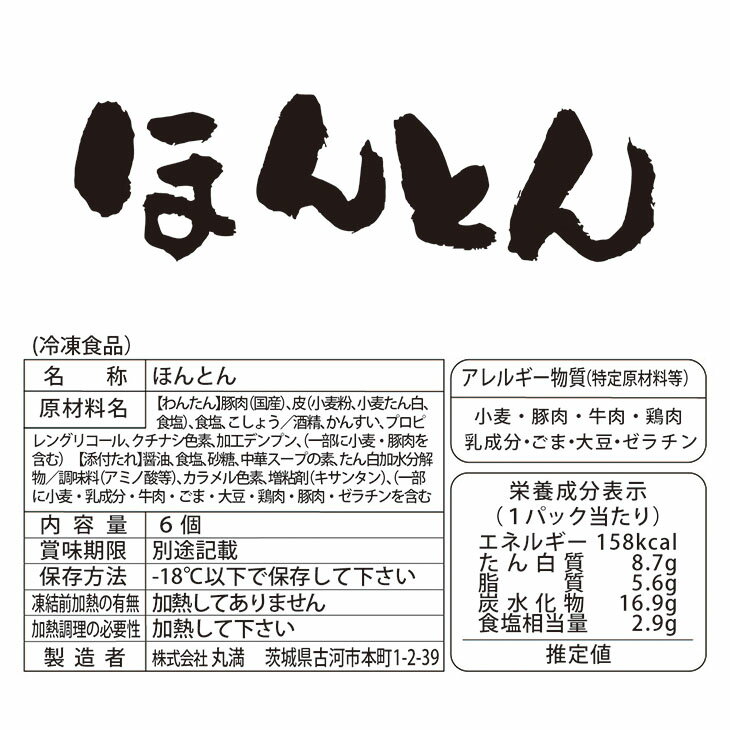 ほんとん
(冷凍食品)
名 称 ほんとん
原材料名 【わんたん】豚肉(国産)、皮(小麦粉、小麦たん白、
食塩)、食塩、こしょう／酒精、かんすい、プロピ
レングリコール、クチナシ色素、加工デンプン、(一部に小麦・豚肉を
含む) 【添付たれ】醤油、食塩、砂糖、中華スープの素、たん白加水分解
物／調味料(アミノ酸等)、カラメル色素、増粘剤(キサンタン)、(一部
に小麦・乳成分・牛肉・ごま・大豆・鶏肉・豚肉・ゼラチンを含む
内容量 6個
賞味期限 別途記載
保存方法 -18℃以下で保存して下さい
凍結前加熱の有無 加熱してありません
加熱調理の必要性 加熱して下さい
製造者 株式会社 丸満 茨城県古河市本町1-2-39
アレルギー物質(特定原材料等)
小麦・豚肉・牛肉・鶏肉
乳成分・ごま・大豆・ゼラチン
栄養成分表示
(1パック当たり)
エネルギー 158kcal
たん白質 8.7g
脂質 5.6g
炭水化物 16.9g
食塩相当量 2.9g
推定値